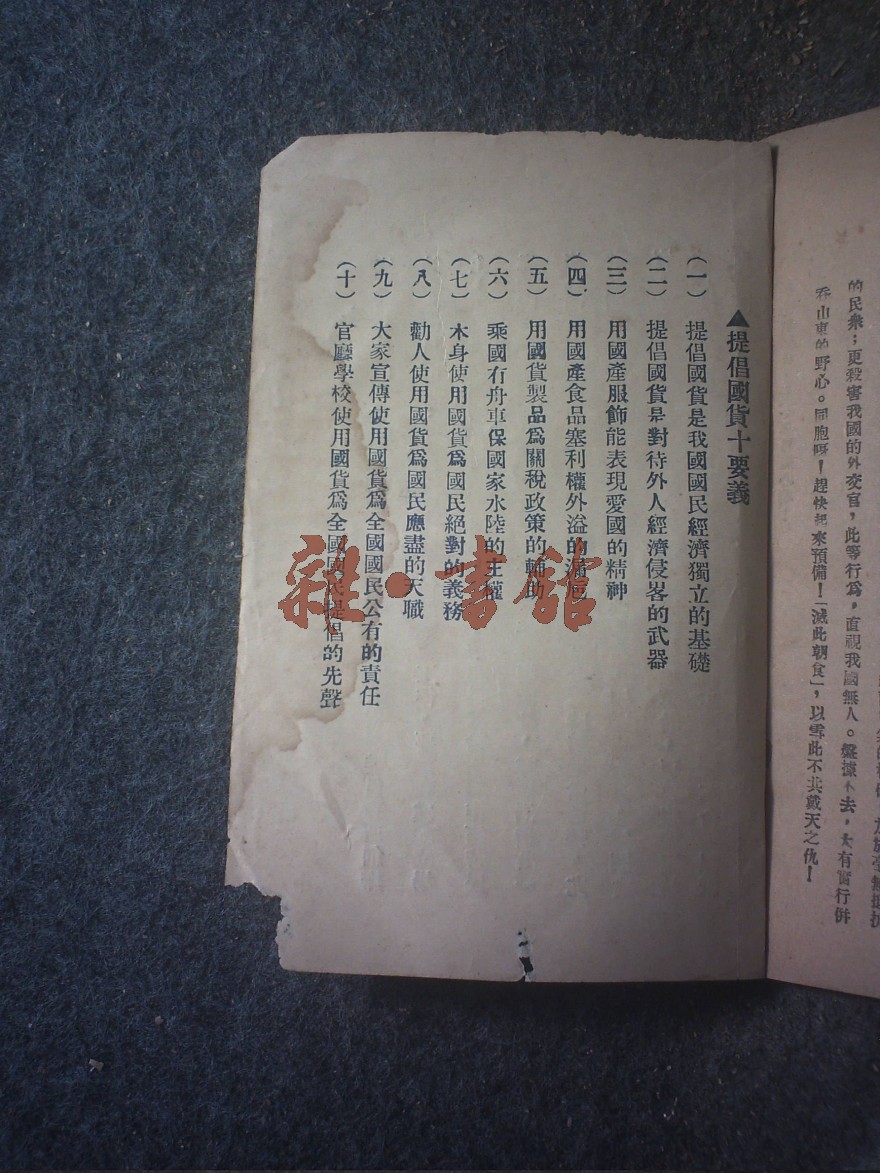 的民衆；更殺害我國的外交官，此等行爲，直視我國無人。盤據不去，大有實行併
吞山東的野心。同胞呀！趕快起來預備！「滅此朝食」，以雪此不共戴天之仇！
▲提倡國貨十要義
（一）提倡國貨是我國國民經濟獨立的基礎
（二）提倡國貨是對待外人經濟侵畧的武器
（三）用國產服飾能表現愛國的精神
（四）用國產食品塞利權外溢的漏巵
（五）用國貨製品爲關稅政策的輔助
（六）乘國有舟車保國家水陸的主權
（七）本身使用國貨爲國民絕對的義務
（八）勸人使用國貨爲國民應盡的天職
（九）大家宣傳使用國貨爲全國國民公有的責任
（十）官廳學校使用國貨爲全國國民提倡的先聲
雜·書館